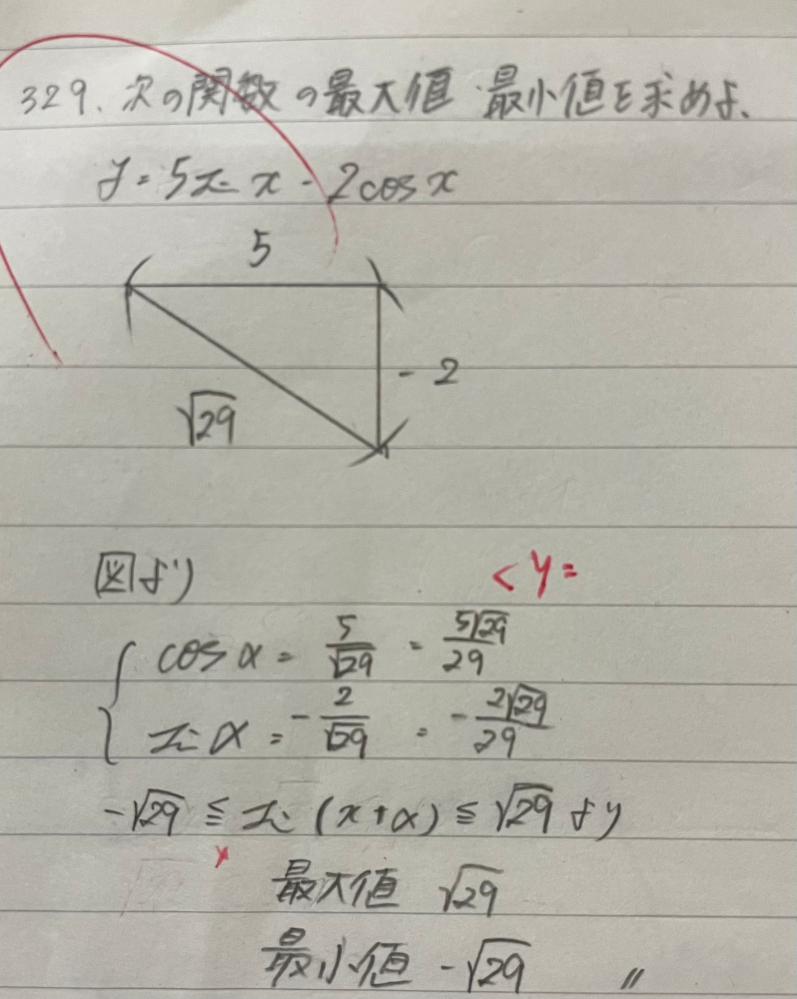 329. 次の関数の最大値・最小値を求めよ。
y = 5sin x - 2cos x
5
- 2
√29
図より
< y =
cos α = 5/√29 = 5√29/29
sin α = - 2/√29 = - 2√29/29
-√29 ≦ sin (x+α) ≦ √29 より
最大値 √29
最小値 -√29 〃